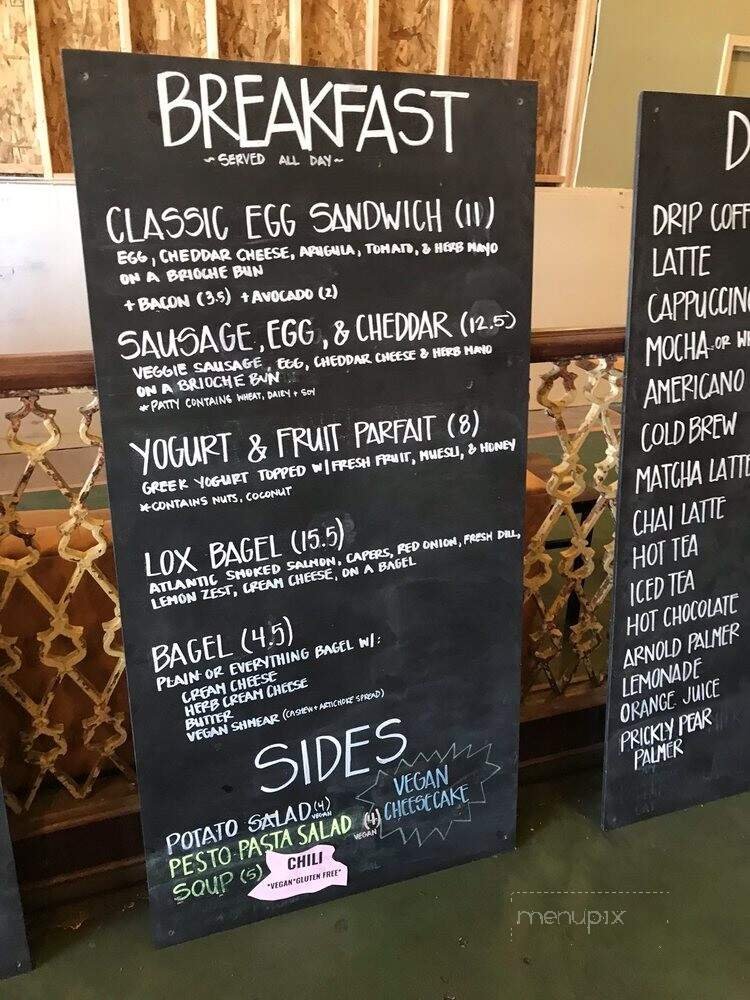 BREAKFAST
~ SERVED ALL DAY ~
CLASSIC EGG SANDWICH (11)
EGG, CHEDDAR CHEESE, ARUGULA, TOMATO, & HERB MAYO
ON A BRIOCHE BUN
+ BACON (3.5) + AVOCADO (2)
SAUSAGE, EGG, & CHEDDAR (12.5)
VEGGIE SAUSAGE, EGG, CHEDDAR CHEESE & HERB MAYO
ON A BRIOCHE BUN
* PATTY CONTAINS WHEAT, DAIRY + SOY
YOGURT & FRUIT PARFAIT (8)
GREEK YOGURT TOPPED W/ FRESH FRUIT, MUESLI, & HONEY
*CONTAINS NUTS, COCONUT
LOX BAGEL (15.5)
ATLANTIC SMOKED SALMON, CAPERS, RED ONION, FRESH DILL,
LEMON ZEST, CREAM CHEESE, ON A BAGEL
BAGEL (4.5)
PLAIN OR EVERYTHING BAGEL W/:
CREAM CHEESE
HERB CREAM CHEESE
BUTTER
VEGAN SHMEAR (CASHEW + ARTICHOKE SPREAD)
SIDES
POTATO SALAD (4)
VEGAN
PESTO-PASTA SALAD (4)
VEGAN
SOUP (5)
CHILI
*VEGAN*GLUTEN FREE*
VEGAN
CHEESECAKE
D
DRIP COFF
LATTE
CAPPUCCIN
MOCHA OR WH
AMERICANO
COLD BREW
MATCHA LATTE
CHAI LATTE
HOT TEA
ICED TEA
HOT CHOCOLATE
ARNOLD PALMER
LEMONADE
ORANGE JUICE
PRICKLY PEAR
PALMER
menupix